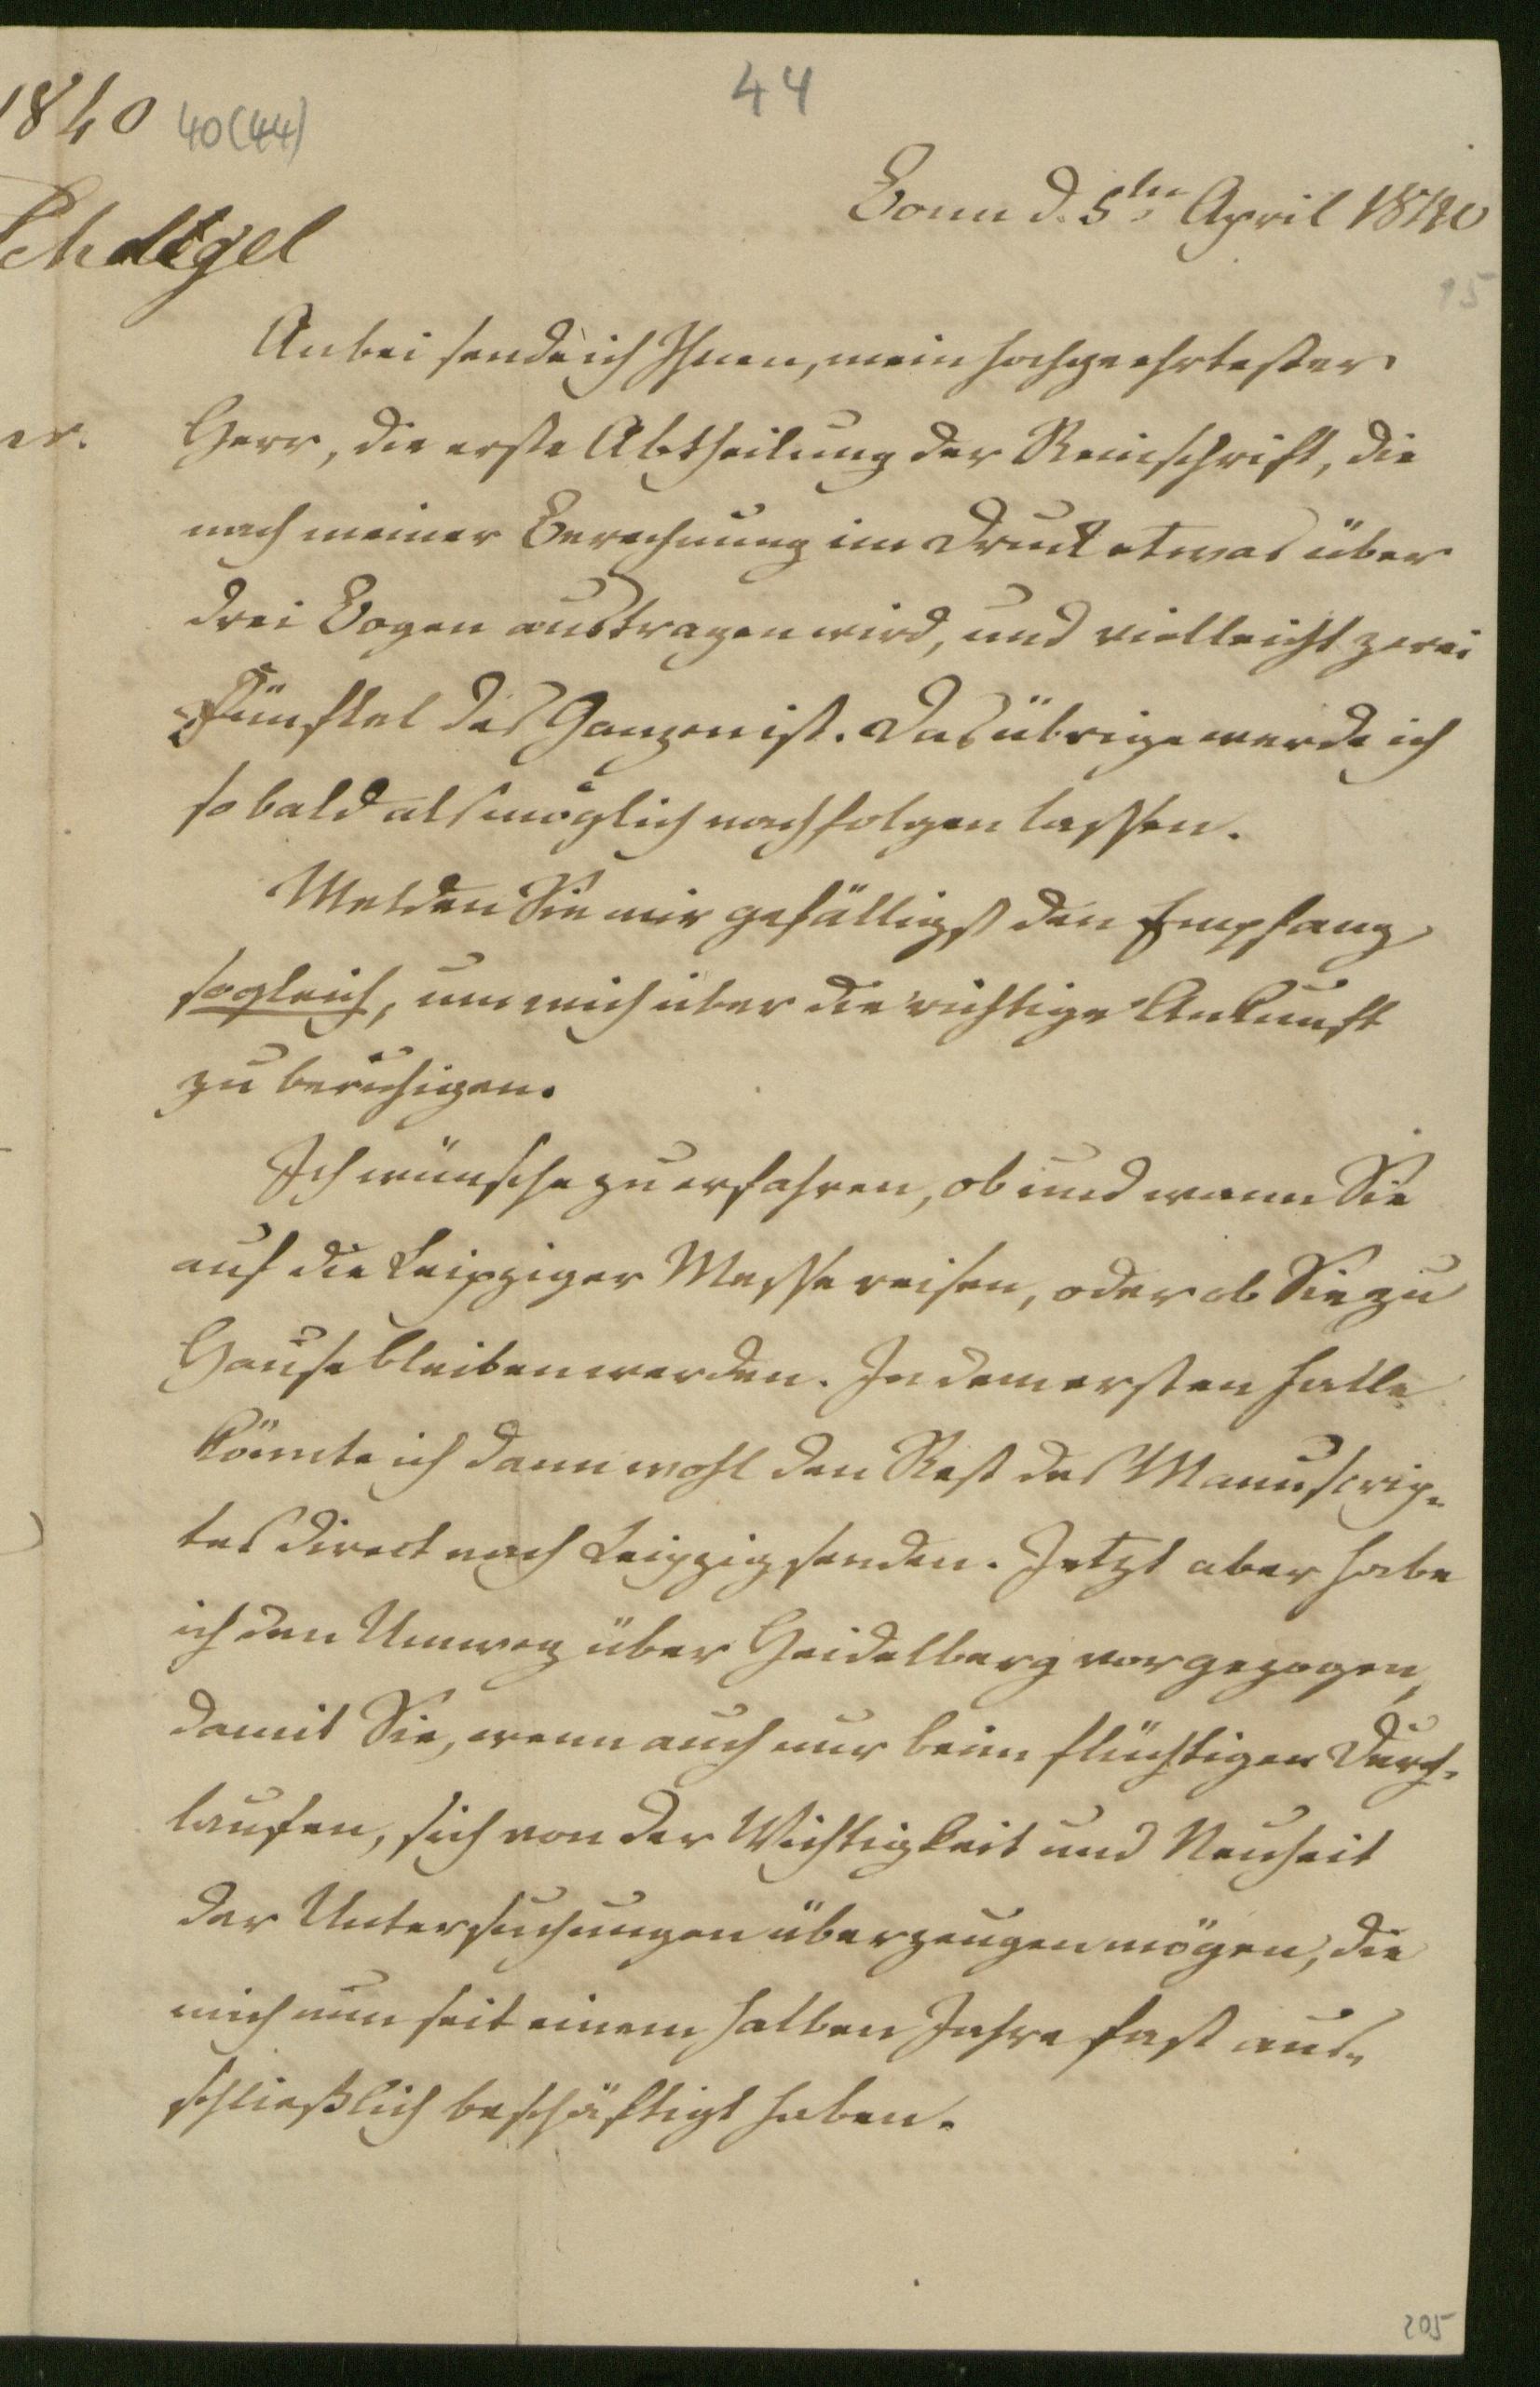 44
1840 40(44)
Schlegel
Bonn d. 5ten April 1840
15
Anbei sende ich Ihnen, mein hochgeehrtester
Herr, die erste Abtheilung der Reinschrift, die
nach meiner Berechnung im Druck etwas über
drei Bogen austragen wird, und vielleicht zwei
Fünftel des Ganzen ist. Das übrige werde ich
so bald als möglich nachfolgen lassen.
Melden Sie mir gefälligst den Empfang
sogleich, um mich über die richtige Ankunft
zu beruhigen.
Ich wünsche zu erfahren, ob und wann Sie
auf die Leipziger Messe reisen, oder ob Sie zu
Hause bleiben werden. In dem ersten Falle
könnte ich dann wohl den Rest des Manuscrip-
tes direct nach Leipzig senden. Jetzt aber habe
ich den Umweg über Heidelberg vorgezogen,
damit Sie, wenn auch nur beim flüchtigen Durch-
laufen, sich von der Wichtigkeit und Neuheit
der Untersuchungen überzeugen mögen, die
mich nun seit einem halben Jahre fast aus-
schließlich beschäftigt haben.
205